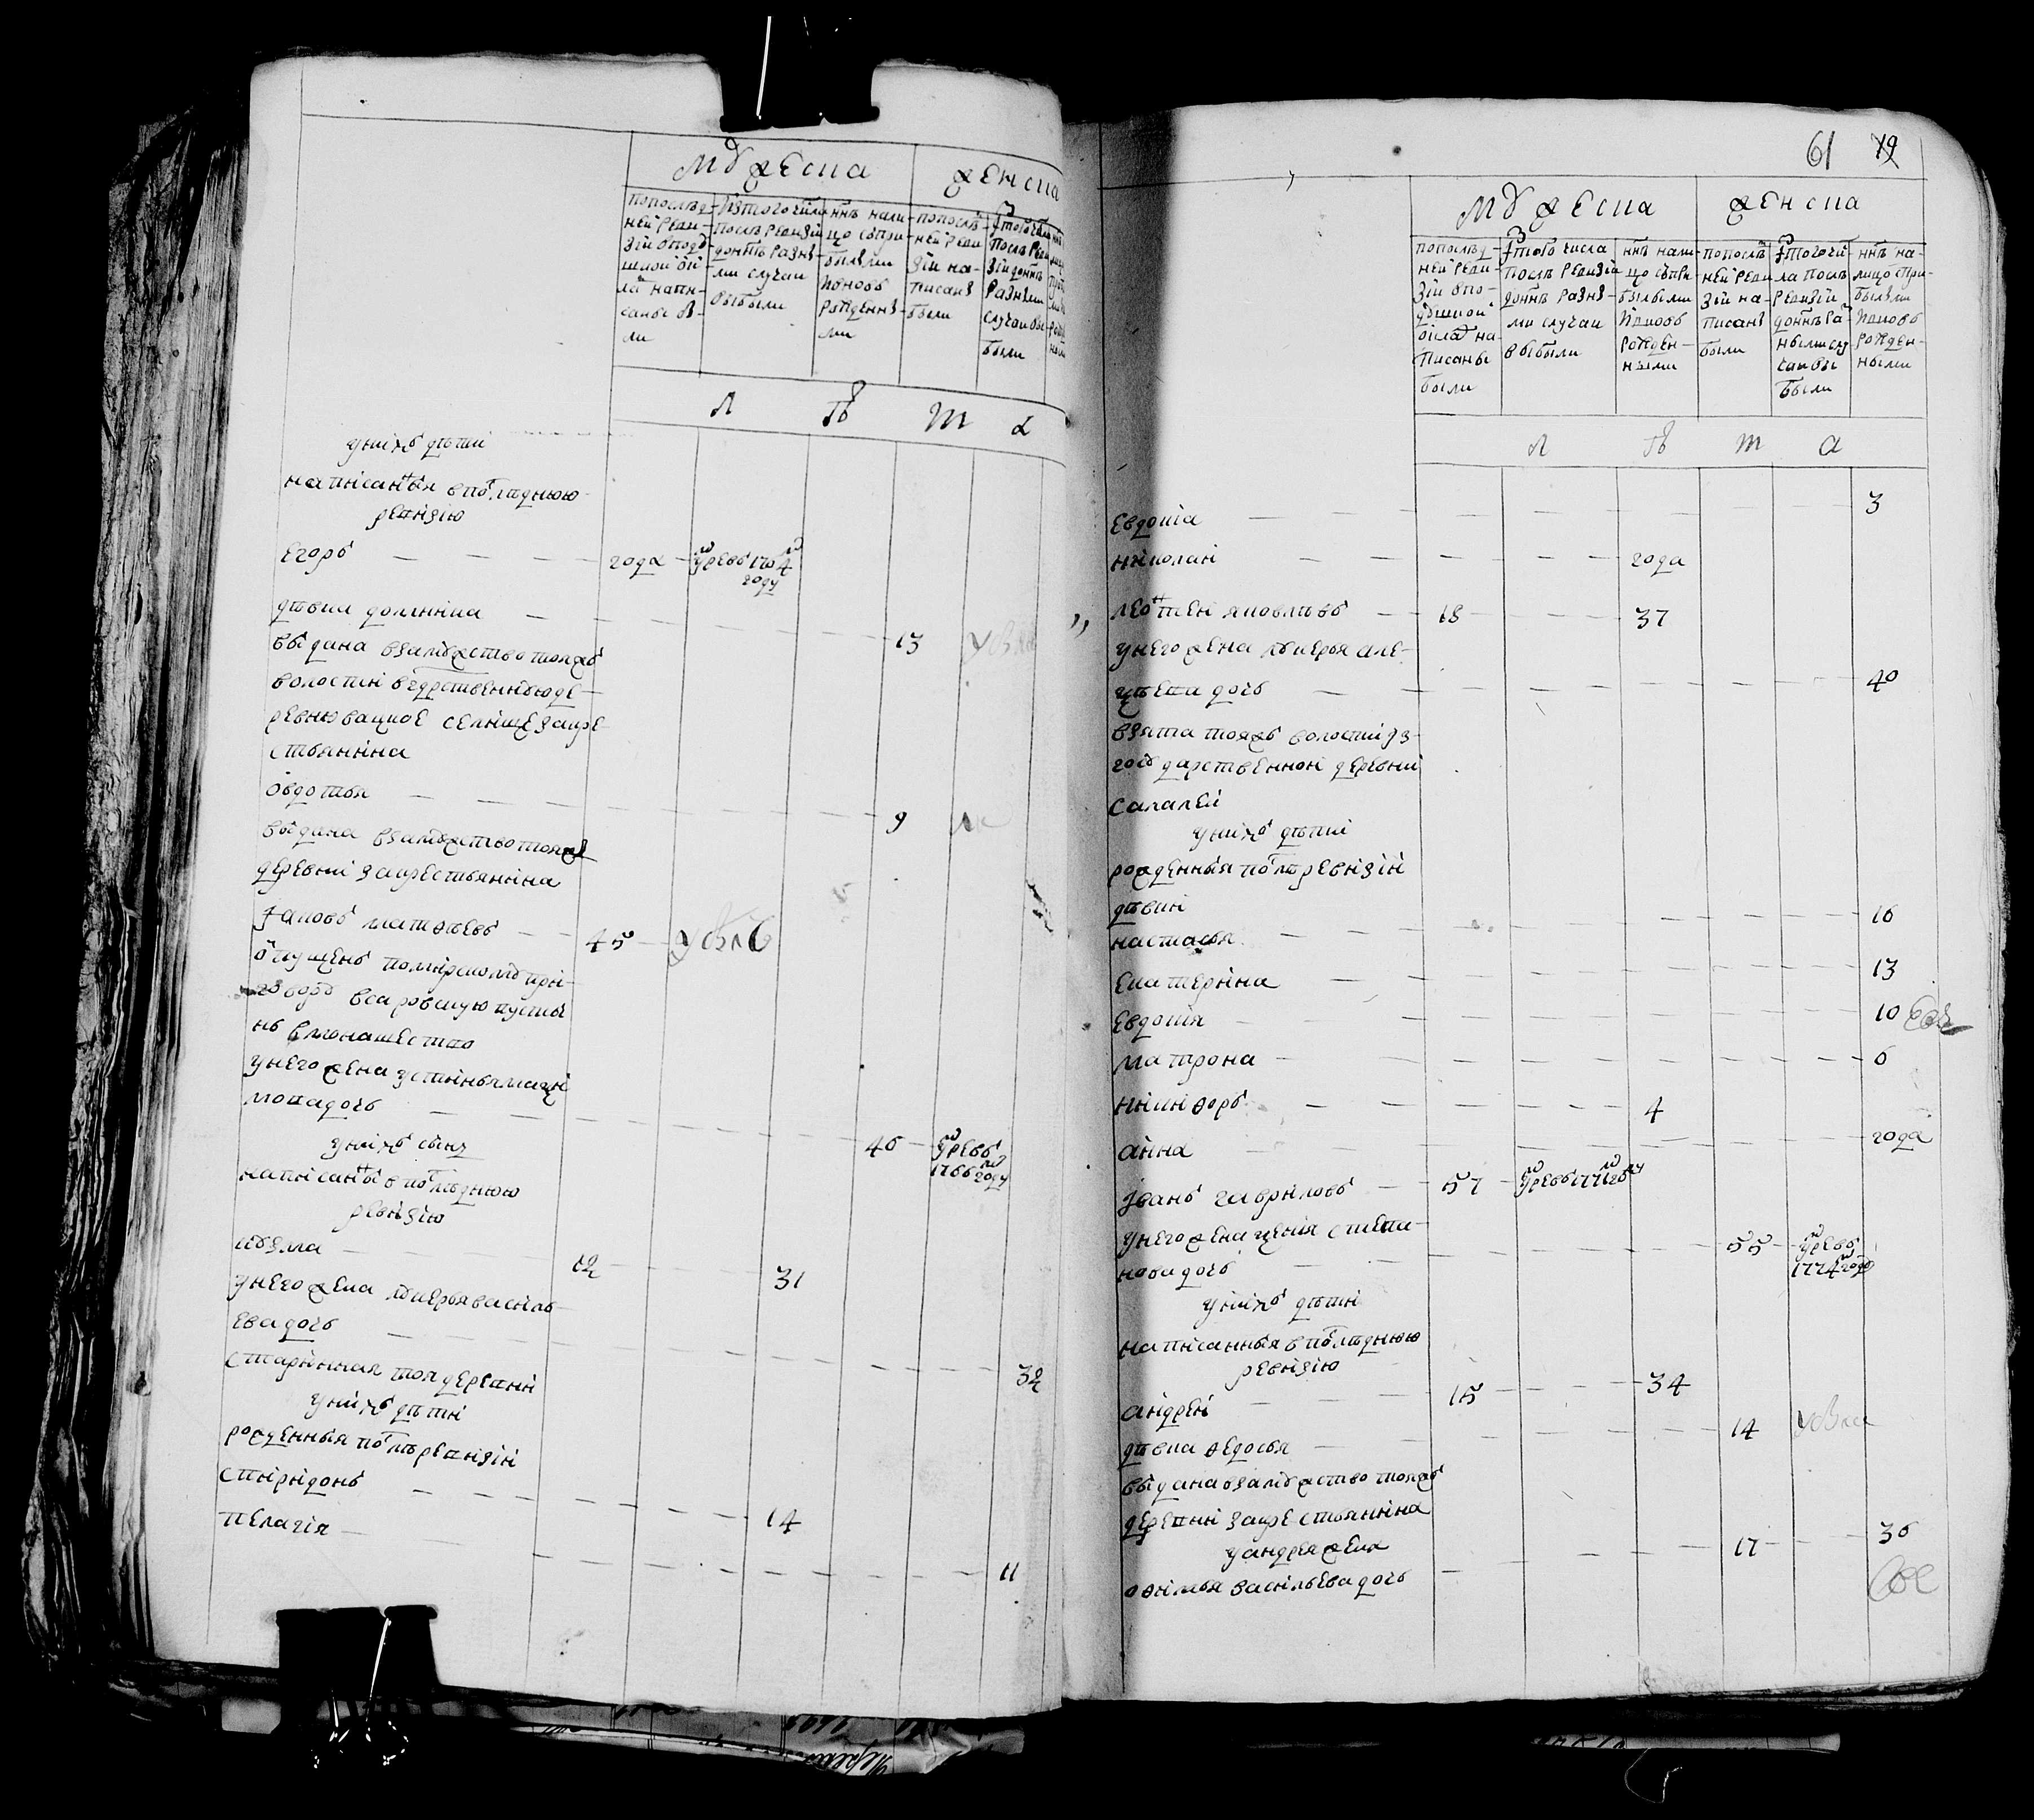 мужеска
женска
попослѣд-
ней реви-
зіи вподу-
шной ок-
ладъ напи-
саны бы-
ли
Изтого числа
послѣ ревизіи
доннѣ разны-
ми случаи
выбыли
ннѣ нали-
цо спри-
былыми
Ивновь
рожденны-
ми
попослѣ
ней реви
зіи на-
писаны
были
Зтого числа
послѣ реви
зіи доннѣ
разными
случаи вы-
были
л ѣ т а
унихъ дѣти
написанныя впослѣднюю
ревизію
Егоръ
года
умре въ 1764
году
дѣвки домника
13
выдана взамужество тояжъ
волости вгдрственную де-
ревню вацкое селище закре-
стьянина
овдотья
9
выдана взамужество тояже
деревни закрестьянина
Iаковъ матфеевъ
45
отпущенъ помирскому при-
говору всаровскую пусты
нь вмонашество
унего жена устинья макси
мова дочь
46
умре въ
1766 году
унихъ сынъ
написанны впослѣднюю
ревизію
кузма
12
31
унего жена лукерья василь-
ева дочь
32
старинная тоя деревни
унихъ дѣти
рожденныя послѣ ревизіи
спиридонъ
14
пелагія
11
61 79
мужеска
женска
попослѣд-
ней реви-
зіи впо-
душной
окладъ на-
писаны
были
Зтого числа
послѣ ревизіи
доннѣ разны-
ми случаи
выбыли
ннѣ нали
цо спри-
былыми
Ивновь
рожден-
ными
попослѣ
ней реви
зіи на-
писаны
были
Зтого чи-
ла послѣ
ревизіи
доннѣ ра-
ными слу
чаи вы
были
ннѣ на-
лицо спри-
былыми
Ивновь
рожден-
ными
л ѣ т а
Евдокіа
3
николаи
года
леонтеи яковлевъ
18
37
унего жена лукерья але-
ѣева дочь
40
взята тояжъ волости Iз-
государственнои деревни
салалей
унихъ дѣти
рожденныя послѣ ревизіи
дѣвки
настасья
16
Екатерина
13
Евдокія
10
матрона
6
никифоръ
4
анна
года
Iванъ гавриловъ
57
умре въ 1771 году
унего жена ксенія степа-
нова дочь
55
умре въ
1774 году
унихъ дѣти
написанныя впослѣднюю
ревизію
андреи
15
34
дѣвка федосья
14
выдана взамужество тояжъ
деревни закрестьянина
уандрея жена
офимья васильева дочь
17
36